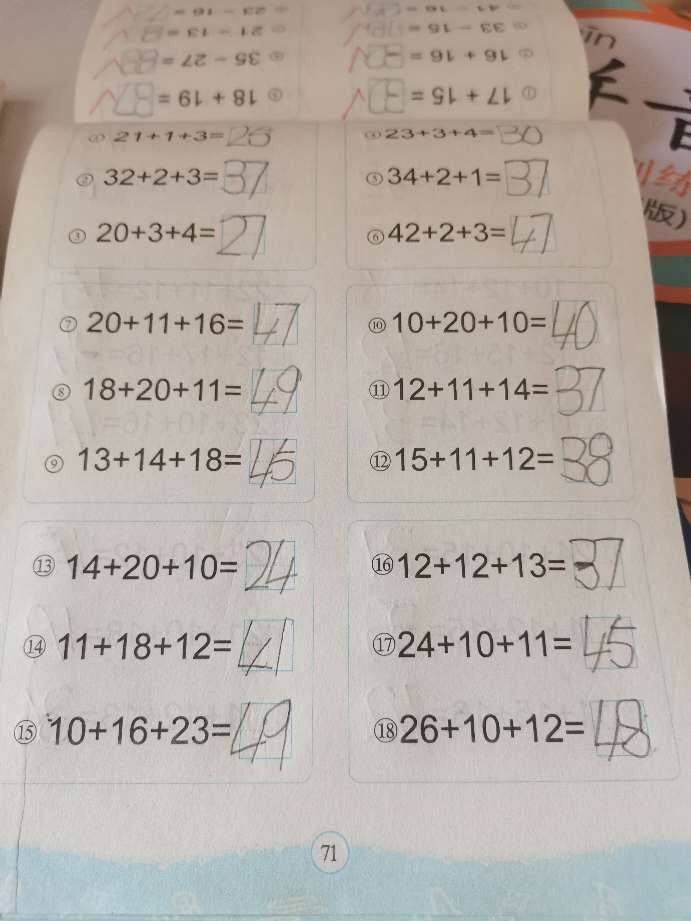 ① 21+1+3=25
④ 23+3+4=30
② 32+2+3=37
⑤ 34+2+1=37
③ 20+3+4=27
⑥ 42+2+3=47
⑦ 20+11+16=47
⑩ 10+20+10=40
⑧ 18+20+11=49
⑪ 12+11+14=37
⑨ 13+14+18=45
⑫ 15+11+12=38
⑬ 14+20+10=24
⑯ 12+12+13=37
⑭ 11+18+12=41
⑰ 24+10+11=45
⑮ 10+16+23=49
⑱ 26+10+12=48
71
① 17 + 15 =
① 18 + 19 =
② 16 + 16 =
35 - 27 =
33 - 15 =
21 - 13 =
音
训练
版）